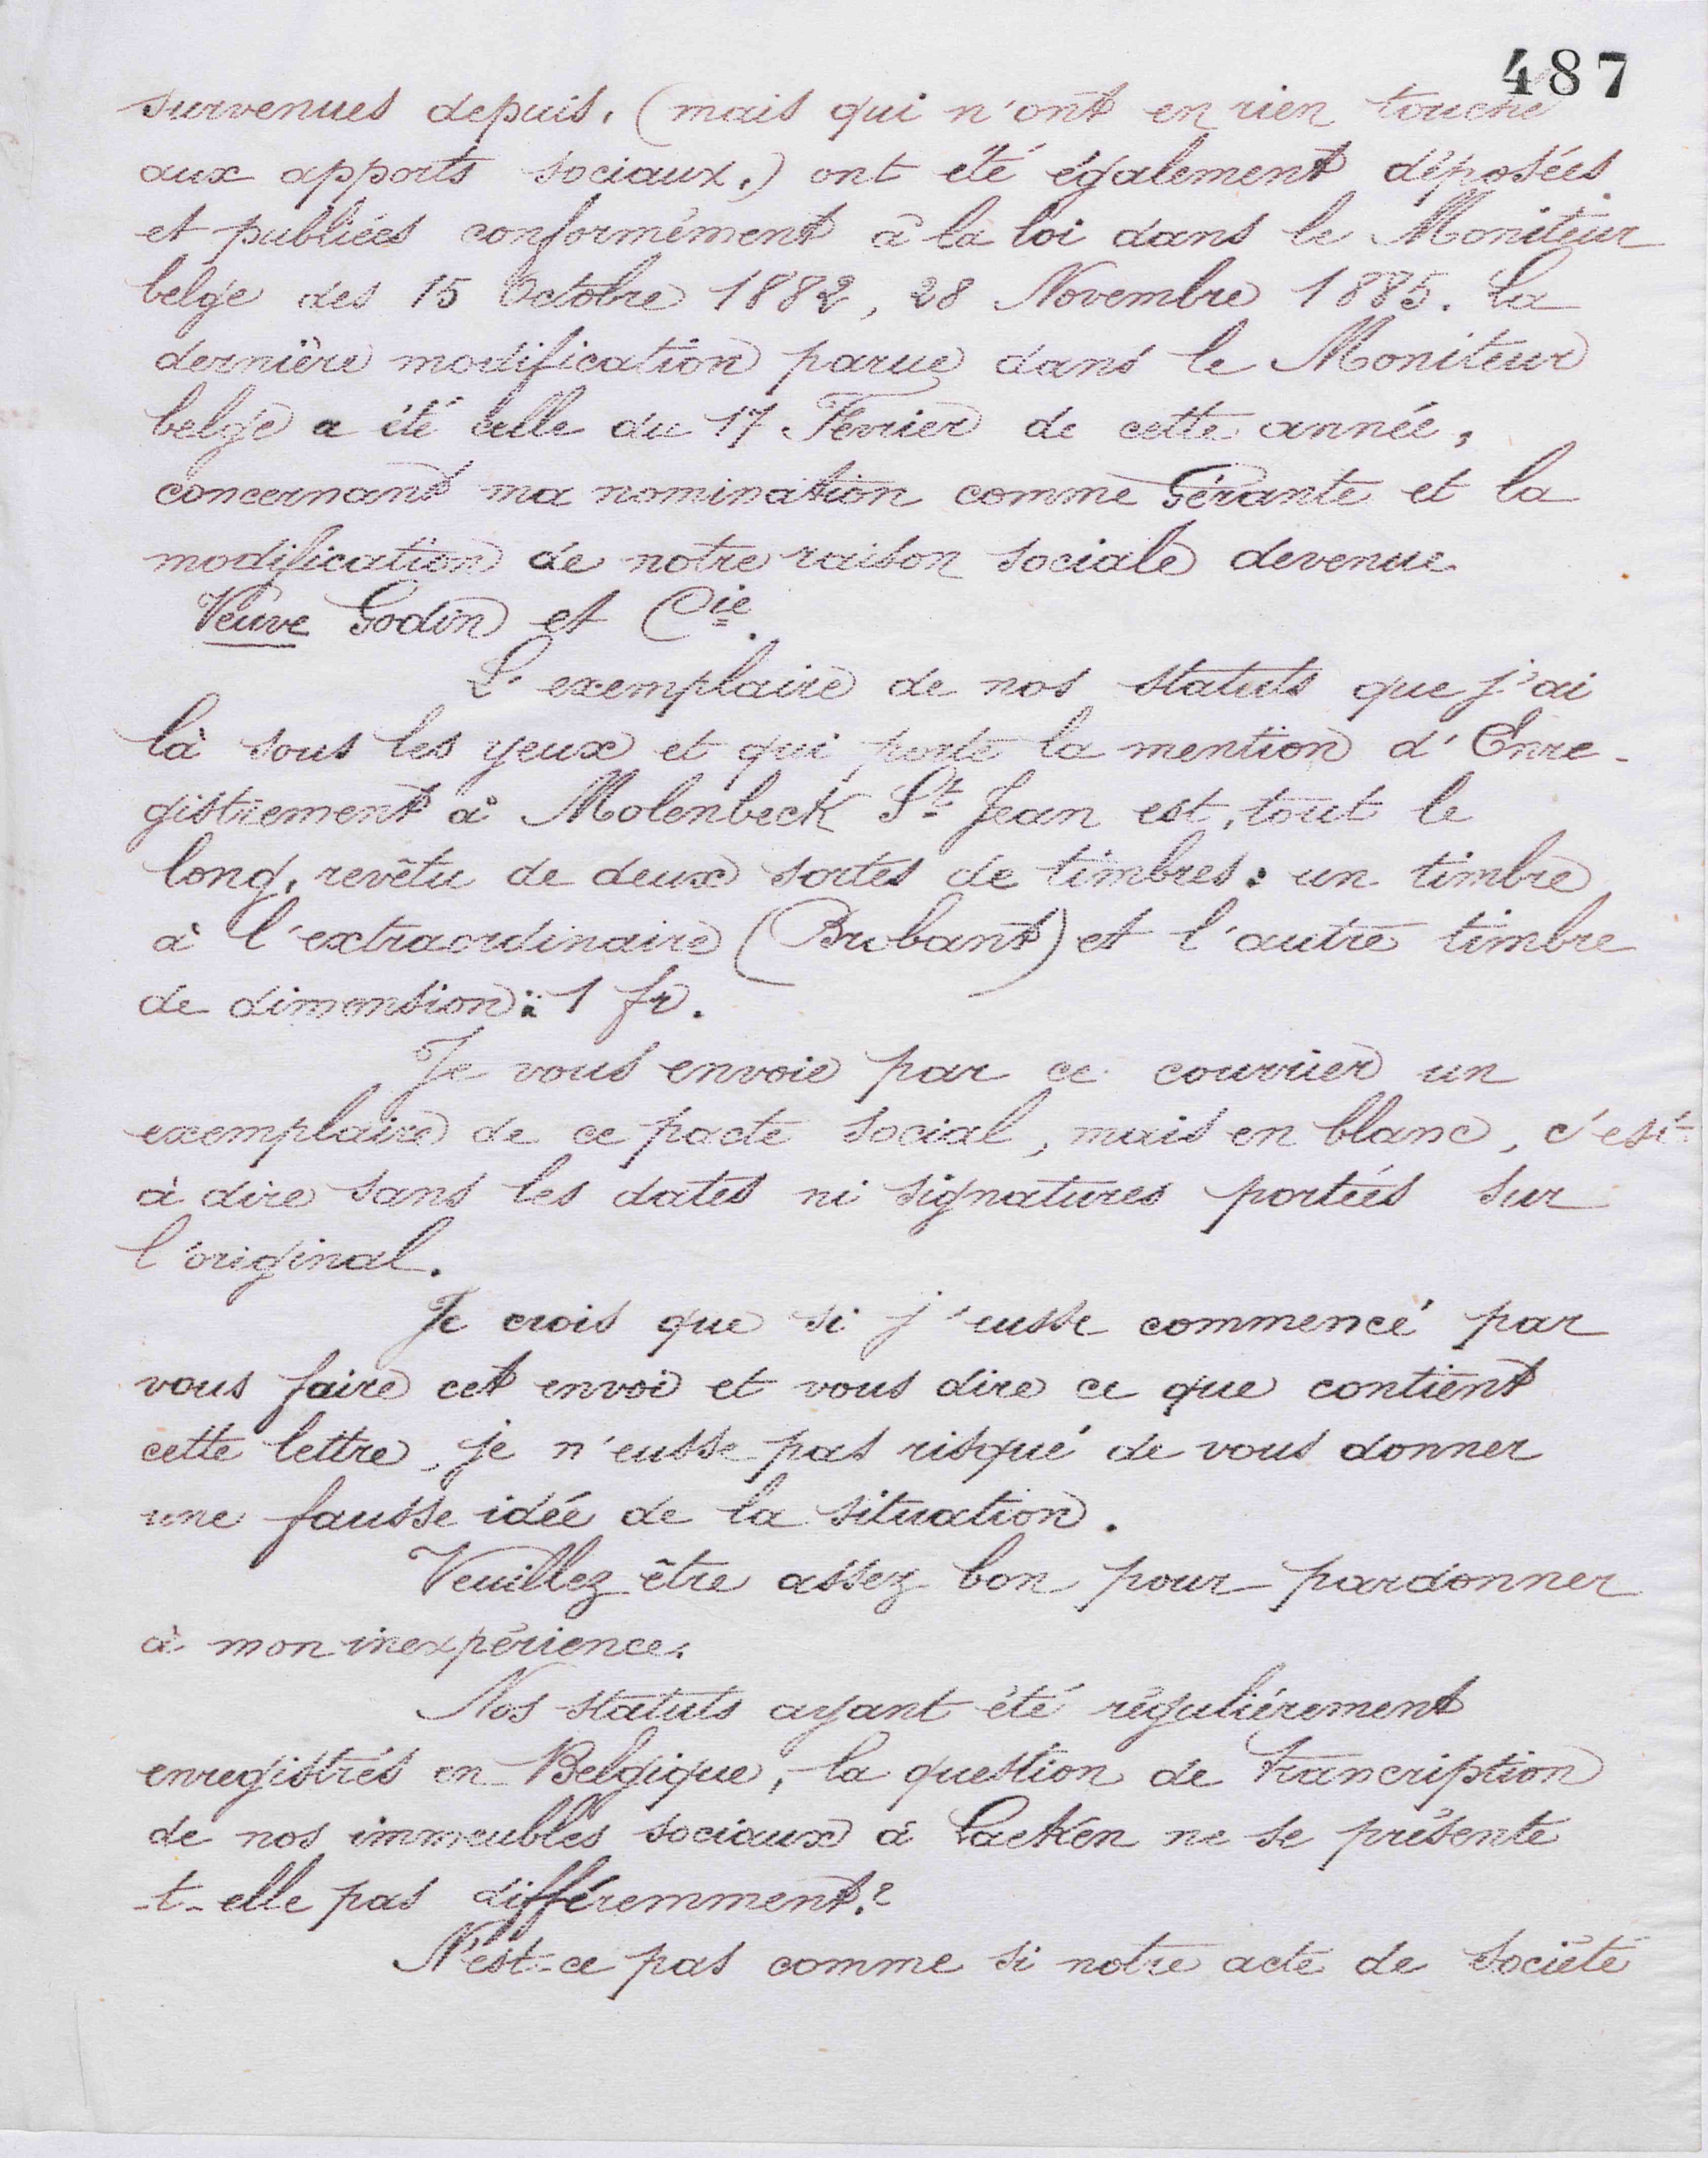 487
survenues depuis, (mais qui n'ont en rien touché
aux apports sociaux,) ont été également déposées
et publiées conformément à la loi dans le Moniteur
belge des 15 Octobre 1882, 28 Novembre 1885. La
dernière modification parue dans le Moniteur
belge a été celle du 17 Février de cette année,
concernant ma nomination comme Gérante et la
modification de notre raison sociale devenue
Veuve Godin et Cie.
L'exemplaire de nos statuts que j'ai
là sous les yeux et qui porte la mention d'Enre-
gistrement à Molenbeck St Jean est, tout le
long, revêtu de deux sortes de timbres : un timbre
à l'extraordinaire (Brabant) et l'autre timbre
de dimension : 1 fr.
Je vous envoie par ce courrier un
exemplaire de ce pacte social, mais en blanc, c'est-
à dire sans les dates ni signatures portées sur
l'original.
Je crois que si j'eusse commencé par
vous faire cet envoi et vous dire ce que contient
cette lettre, je n'eusse pas risqué de vous donner
une fausse idée de la situation.
Veuillez être assez bon pour pardonner
à mon inexpérience.
Nos statuts ayant été régulièrement
enregistrés en Belgique, la question de trancription
de nos immeubles sociaux à Laeken ne se présente
-t-elle pas différemment ?
N'est-ce pas comme si notre acte de société